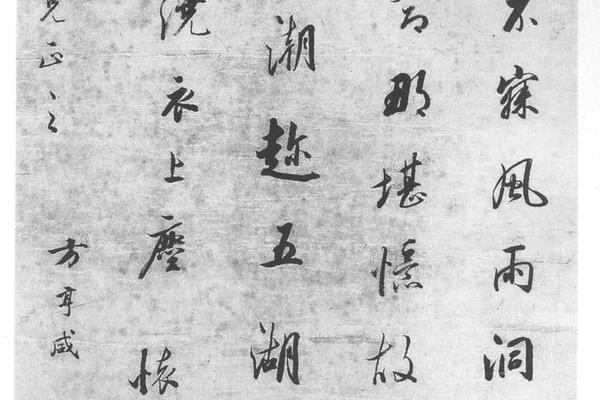 不寐風雨洞
那堪憶故
潮趂五湖
衣上塵懷
兄正之
方亨咸